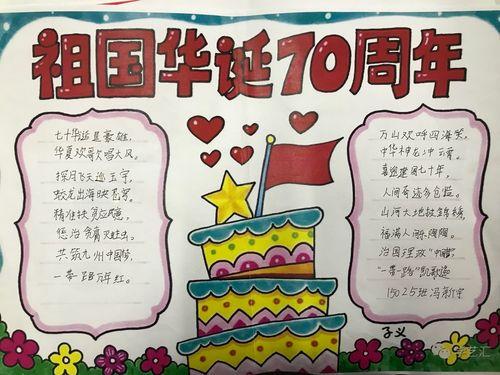 祖国华诞70周年
七十华诞显豪雄,
华夏欢歌唱大风。
探月飞天巡玉宇,
蛟龙出海映苍穹。
精准扶贫应民意,
惩治贪腐灭蛀虫。
共筑九州中国梦,
一带一路万年红。
万山欢呼四海笑,
中华神龙冲云霄。
喜迎建国七十年,
人间奇迹
山河大地披锦绣,
福满人间乐陶陶。
治国理政
"一带一路"凯歌
15025班
子义
学艺汇